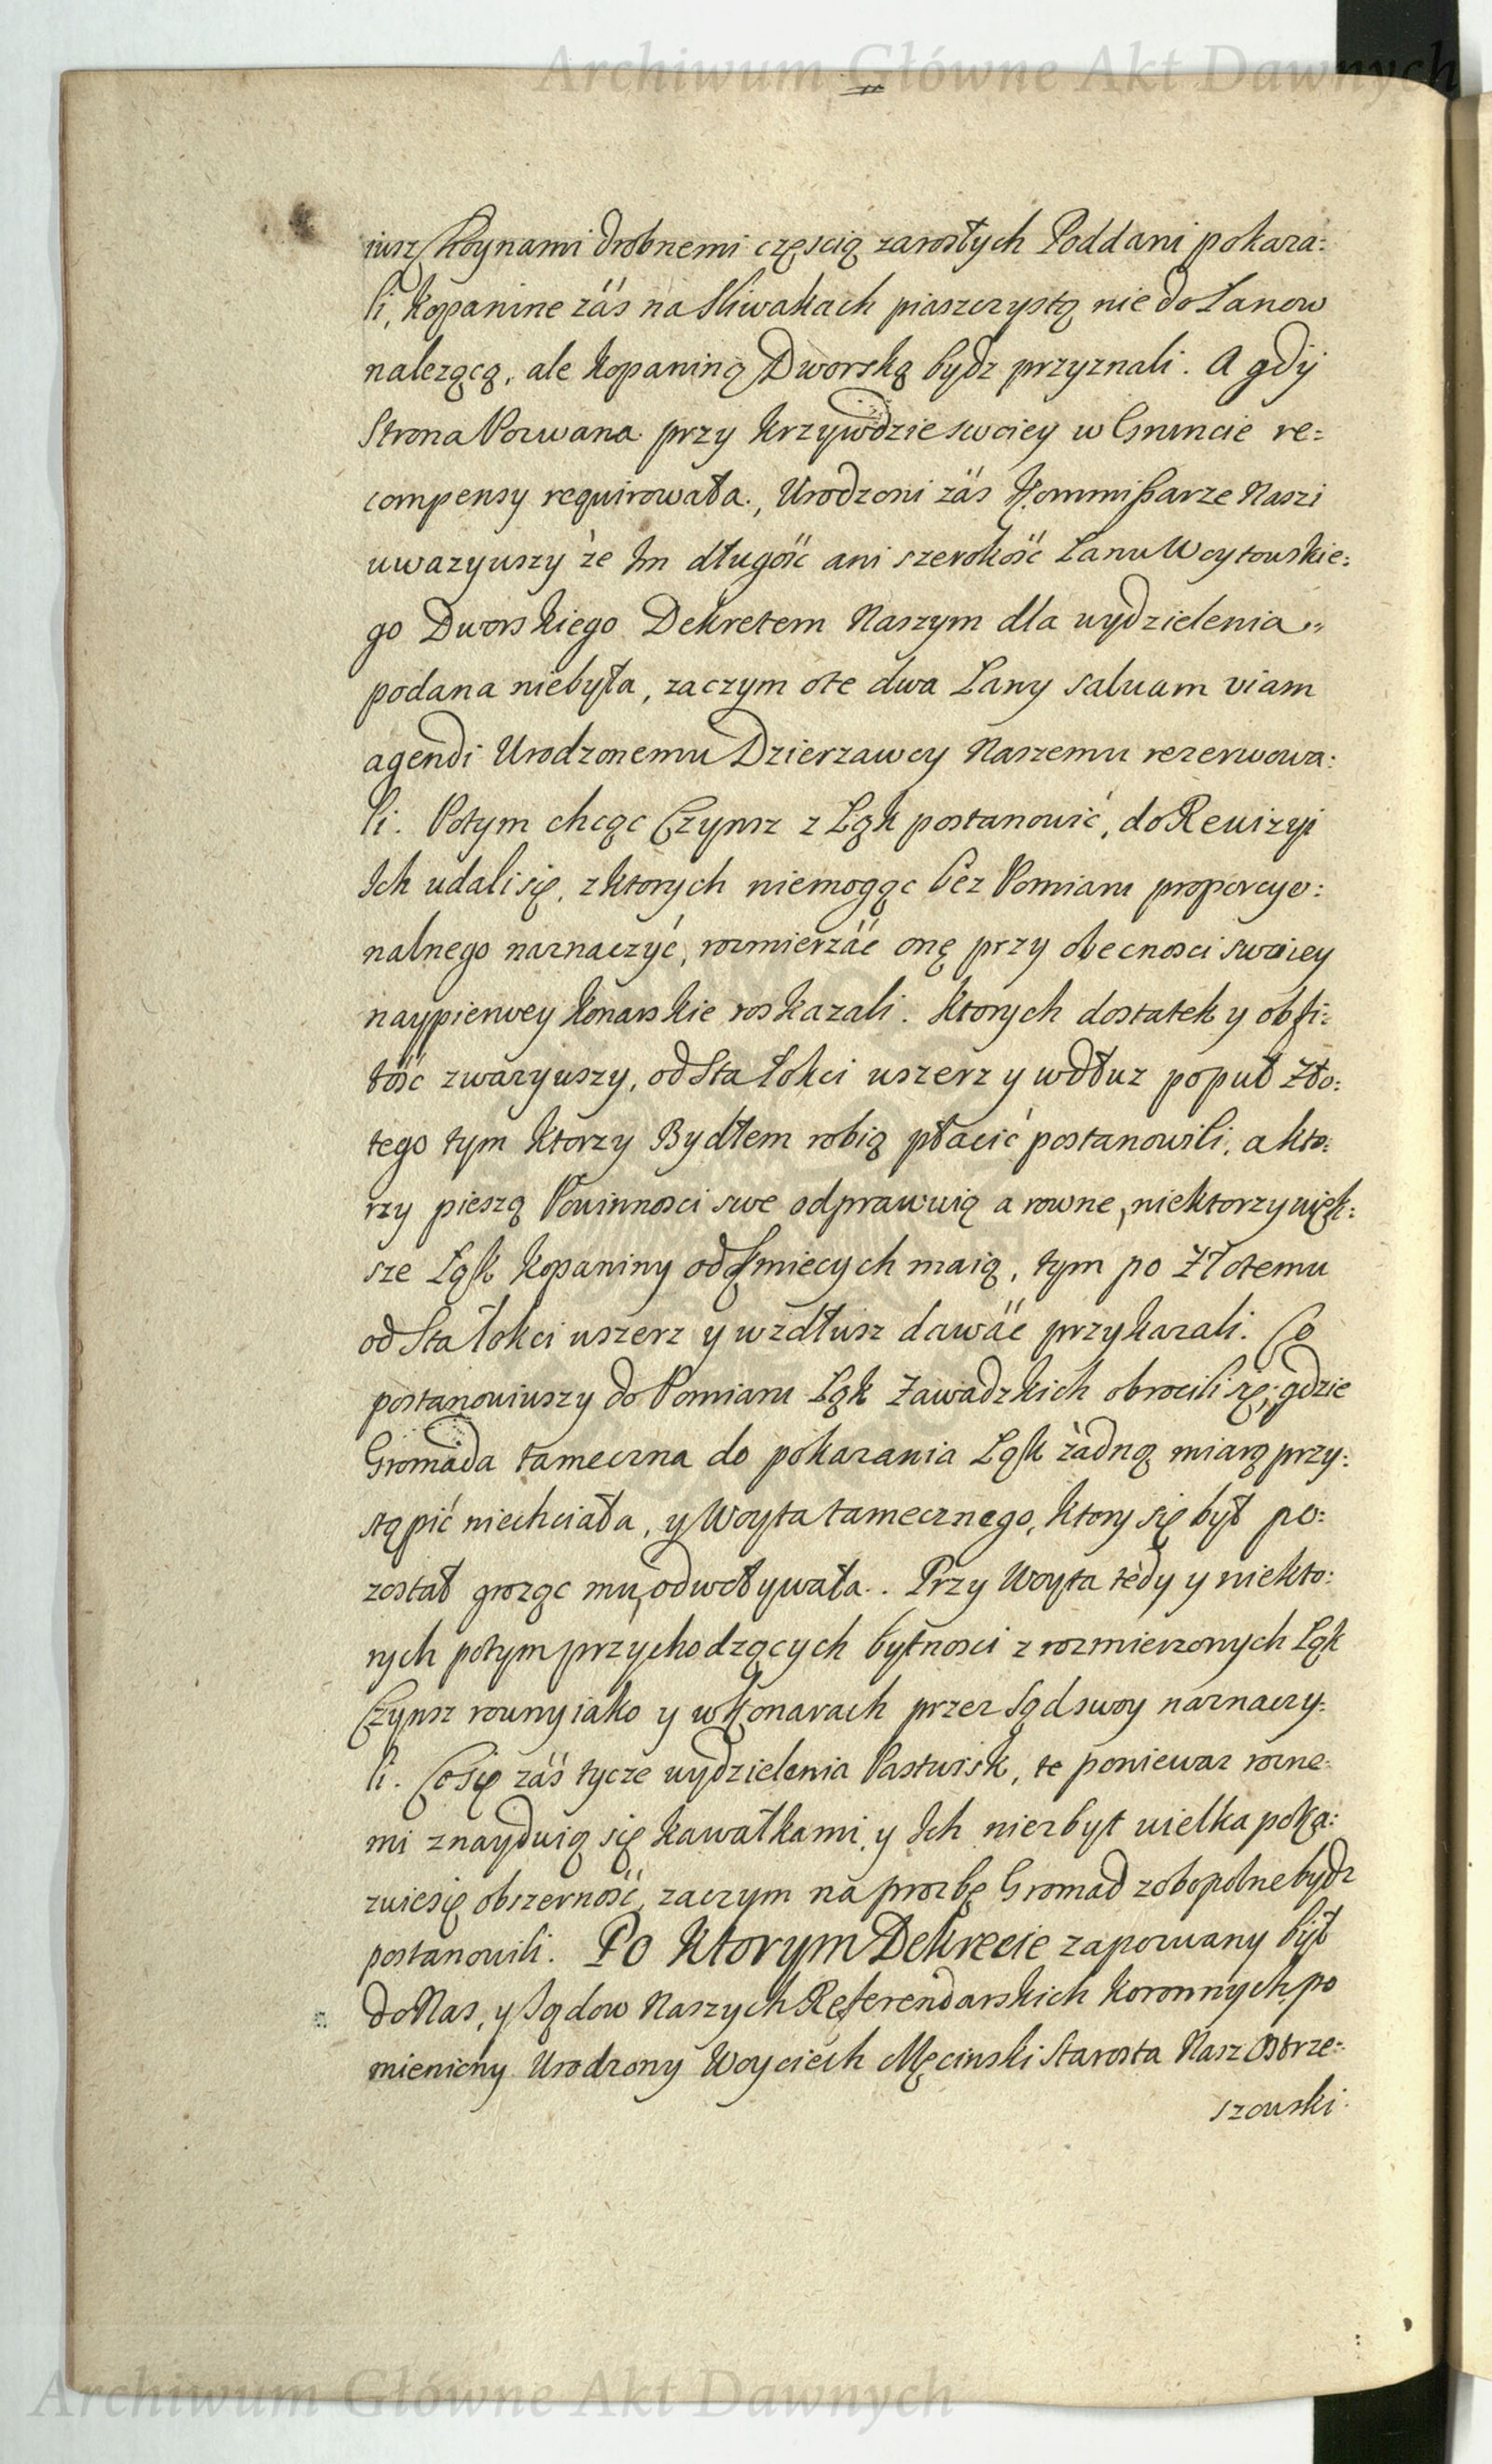 Archiwum Główne Akt Dawnych
iusz Choynami drobnemi częscią zarosłych Poddani pokaza:
li, kopanine záś na Sliwakach piaszczystą nie do Łanow
nalezącą, ale kopaniną Dworską bydz przyznali. A gdÿ
Strona Pozwana przy krzywdzie swoiey w Gruncie re=
compensy requirowała., Urodzoni záś Kommißarze Naszi
uwazywszy że Im długość ani szerokość Łanu Woytowskie:
go Dworskiego Dekretem Naszym dla wydzielenia
podana niebyła, zaczym ote dwa Łany salvam viam
agendi Urodzonemu Dzierzawcy Naszemu rezerwowa:
li. Potym chcąc Czynsz z Łąk postanowić, do Rewizyi
Ich udali się, z ktorych niemogąc bez Pomiaru proporcyo:
nalnego naznaczyć, rozmierzáć onę przy obecnosci swoiey
naypierwey konarskie roskazali. ktorych dostatek y obfi:
tość zwazywszy, od Sta łokci wszerz y wdłuz popuł Zło:
tego tym ktorzy Bydłem robią płacić postanowili, a kto:
rzy pieszą Powinnosci swe odprawuią a rowne, niektorzy więk:
sze Łąk kopaniny od kmiecych maią, tym po Złotemu
od Sta łokci wszerz y wzdłusz dawáć przykazali. Co
postanowiwszy do Pomiaru Łąk Zawadzkich obrocili się; gdzie
Gromada tameczna do pokazania Łąk żadną miarą przy:
stąpić niechciała, y Woyta tamecznego, ktory się był po:
został grożąc mu, odwoływała. Przy Woyta tedy y niekto:
rych potym przychodzących bytnosci z rozmierzonych Łąk
Czynsz rowny iako y w Konarach przez Sąd swoy naznaczy:
li. Co się záś tycze wydzielenia Pastwisk, te poniewaz rozne:
mi znayduią się kawałkami, y Ich niezbyt wielka poka:
zuiesię obszerność, zaczym na prozbę Gromad zobopolne bydz
postanowili. Po ktorym Dekrecie zapozwany był
do Nas, y Sądow Naszych Referendarskich koronnych, po
mieniony Urodzony Woyciech Męcinski Starosta Nasz Ostrze:
szowski
Archiwum Główne Akt Dawnych